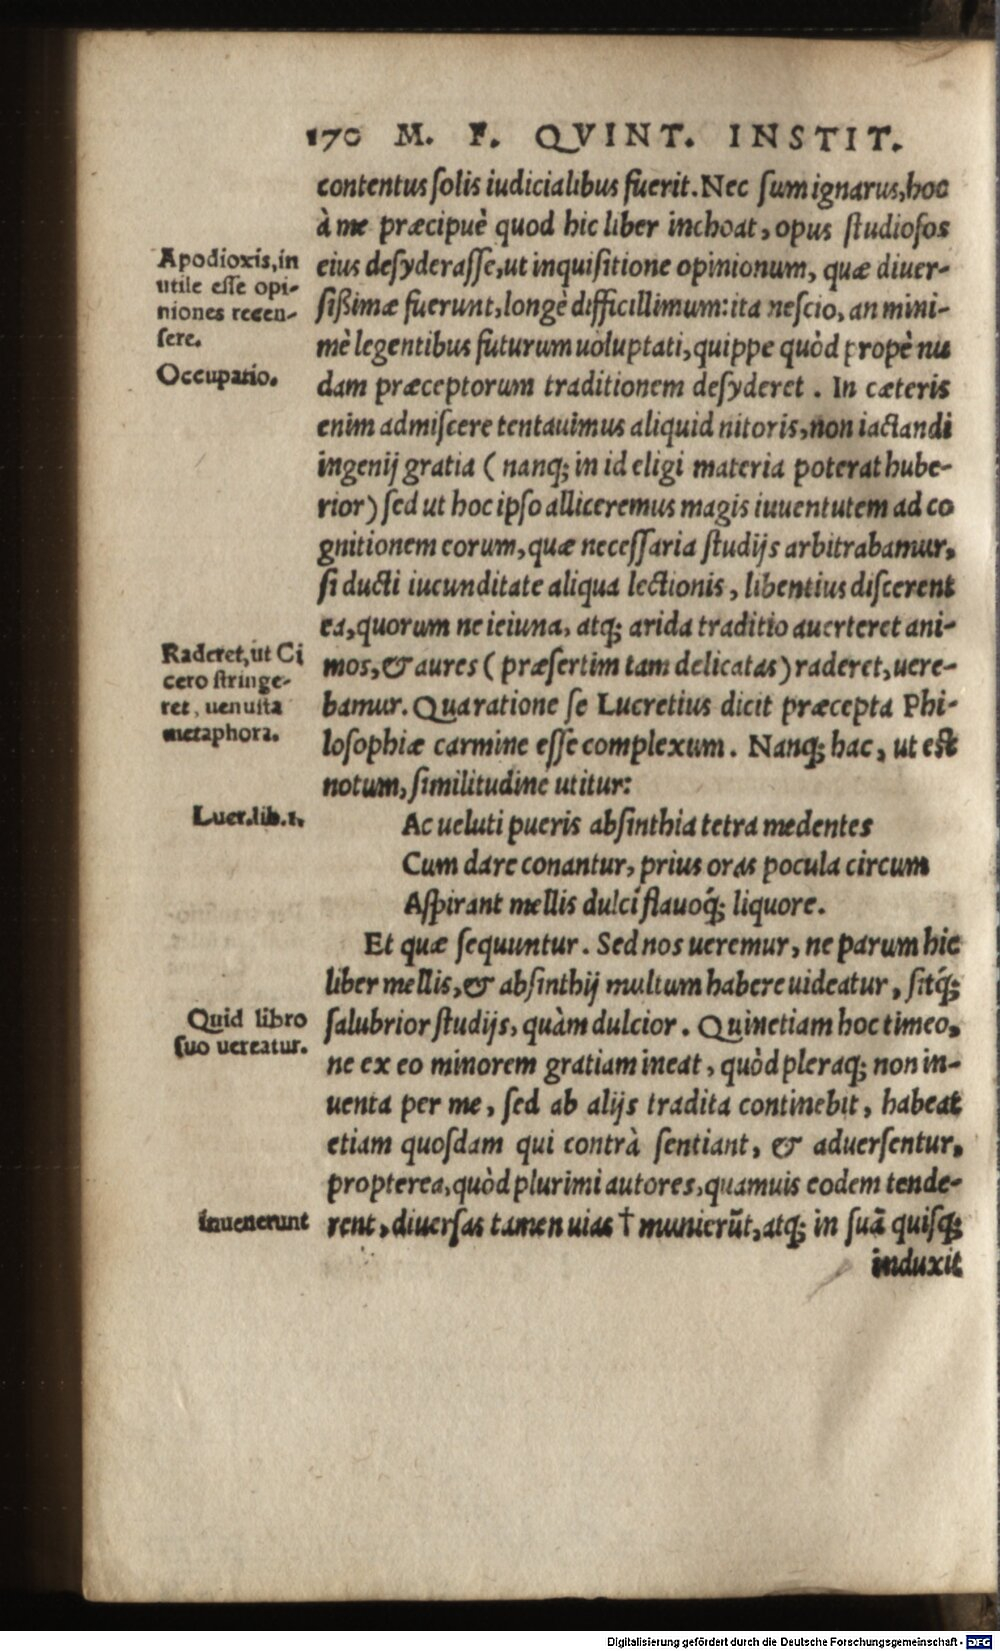 170 M. F. QVINT. INSTIT.
contentus solis iudicialibus fuerit. Nec sum ignarus, hoc
à me præcipuè quod hic liber inchoat, opus studiosos
eius desyderasse, ut inquisitione opinionum, quæ diuer-
sißimæ fuerunt, longè difficillimum: ita nescio, an mini-
mè legentibus futurum uoluptati, quippe quòd propè nu
dam præceptorum traditionem desyderet . In cæteris
enim admiscere tentauimus aliquid nitoris, non iactandi
ingenij gratia ( nanq; in id eligi materia poterat hube-
rior ) sed ut hoc ipso alliceremus magis iuuentutem ad co
gnitionem eorum, quæ necessaria studijs arbitrabamur,
si ducti iucunditate aliqua lectionis , libentius discerent
ea, quorum ne ieiuna, atq; arida traditio auerteret ani-
mos, & aures ( præsertim tam delicatas ) raderet, uere-
bamur. Qua ratione se Lucretius dicit præcepta Phi-
losophiæ carmine esse complexum . Nanq; hac, ut est
notum, similitudine utitur:
Ac ueluti pueris absinthia tetra medentes
Cum dare conantur, prius oras pocula circum
Aspirant mellis dulci flauoq́; liquore.
Et quæ sequuntur . Sed nos ueremur, ne parum hic
liber mellis, & absinthij multum habere uideatur, sitq́;
salubrior studijs, quàm dulcior . Quinetiam hoc timeo,
ne ex eo minorem gratiam ineat , quòd pleraq; non in-
uenta per me, sed ab alijs tradita continebit, habeat
etiam quosdam qui contrà sentiant, & aduersentur,
propterea, quòd plurimi autores, quamuis eodem tende-
rent, diuersas tamen uias † munierũt, atq; in suã quisq;
induxit
Apodioxis, in
utile esse opi-
niones recen-
sere.
Occupatio.
Raderet, ut Ci
cero stringe-
ret, uenusta
metaphora.
Lucr. lib. 1.
Quid libro
suo uereatur.
inuenerunt
Digitalisierung gefördert durch die Deutsche Forschungsgemeinschaft - DFG